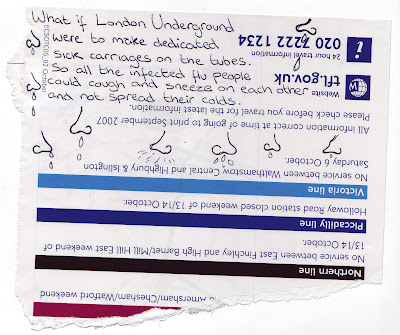 What if London Underground
were to make dedicated
sick carriages on the tubes.
So all the infected flu people
could cough and sneeze on each other
and not spread their colds.
Chesham/Watford weekend
Northern line
No service between East Finchley and High Barnet/Mill Hill East weekend of
13/14 October.
Piccadilly line
Holloway Road station closed weekend of 13/14 October.
Victoria line
No service between Walthamstow Central and Highbury & Islington
Saturday 6 October.
All information correct at time of going to print September 2007
Please check before you travel for the latest information.
Website
tfl.gov.uk
24 hour travel information
020 7222 1234